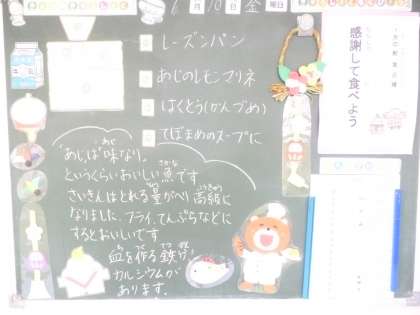 6月10日金曜日
レーズンパン
あじのレモンマリネ
はくとう(かんづめ)
てぼまめのスープに
"あじ"は味なり。
というくらいおいしい魚です
さいきんはとれる量がへり高級に
なりました。フライ、てんぷらなどに
するとおいしいです
血を作る鉄や
カルシウムが
あります。
感謝して食べよう